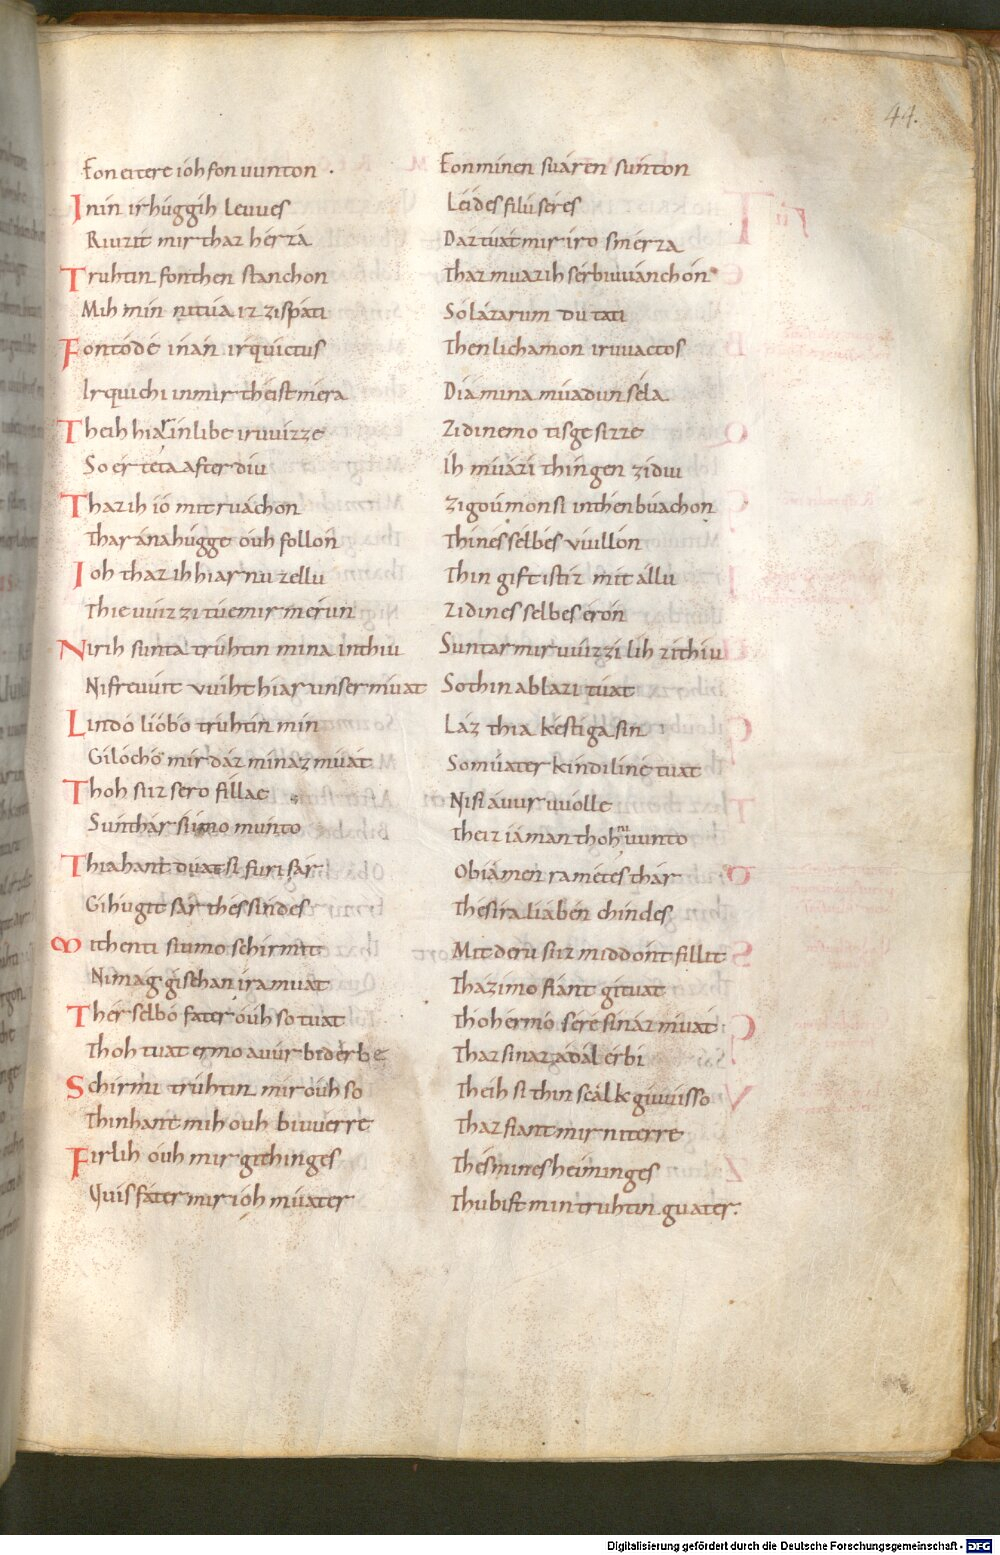 44.
Fon eitere ióh fon vunton . Fon mínen suáren súnton
Inín irhúggih leuues Léides filu séres
Riuzit mir thaz hérza Dáz túat mir íro smérza
Truhtin fon then stanchon thaz muazih sér biuuánchón
Mih mín nitúa ir zi spáti Só lázarum du tati
Fon tóde ínan irquictus Then líchamon iruuactos
Irquichi in mir theist mera Dia mina múadun séla
Theih hiar in libe iruuizze Zi dinemo disge sizze
So er téta after diu Ih muázi thingen zi diu
Thaz ih ió mit ruáchon Zi goúmon si in then búachon
Thar ána húgge óuh follon Thínes sélbes vuillón
Ioh thaz ih hiar nu zellu Thin gift ist iz mit állu
Thie uuizzi túe mir mérun Zi dines selbes éron
Nirih sunta trúhtin mina in thiu Suntar mir uuizzi lih zi thiu
Ni freuuit vuiht hiar unser múat So thin ablazi túat
Lindo lióbo truhtin min Láz thia késtiga sin
Gilócho mir dáz mínaz múat So múater kindiline tuat
Thoh si iz sero fillae Nist áuur uuolle
Súnthar si imo múnto Theiz íaman thoh nu vunto
Thia hant duat si furi sár Ob iámen ramétes thár
Gihugit sár thes sindes Thes ira liaben chindes
Mit henti siu imo schirmit Mit deru si iz mid dónt fillit
Ni mág gisehan íra muat Thaz imo fíant gituat
Thér selbo fater óuh so tuat Thoh er mo sére sinaz múat
Thoh tuat er mo auúr bidérbe Thaz sinaz ádal érbi
Schirmi trúhtin mir óuh so Theih si thin scálk giuuisso
Thin hant mih ouh biuuerre Thaz fíant mir ni terre
Firlih óuh mir githinges Thés mines heiminges
Quis fáter mir ióh múater Thu bist min truhtin guater.
Digitalisierung gefördert durch die Deutsche Forschungsgemeinschaft - DFG